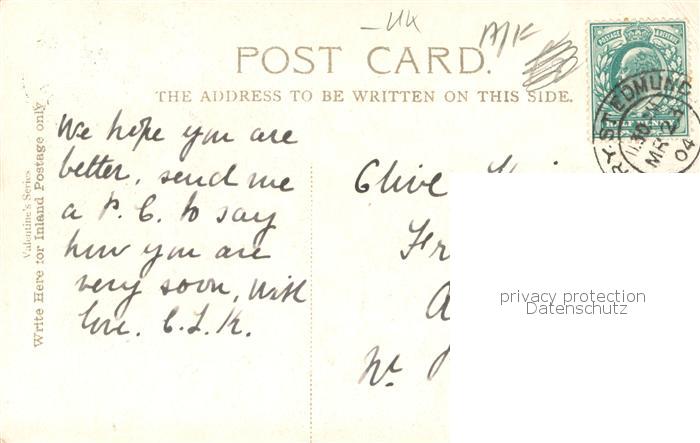 -UK
A/K
POST CARD.
THE ADDRESS TO BE WRITTEN ON THIS SIDE.
POSTAGE & REVENUE
HALF PENNY
RY ST EDMUND
11.30
MR 24
04
Valentine's Series
Write Here for Inland Postage only
We hope you are
better, send me
a P. C. to say
how you are
very soon, with
love. C.L.K.
Clive
Fr
A
Nr.
privacy protection
Datenschutz